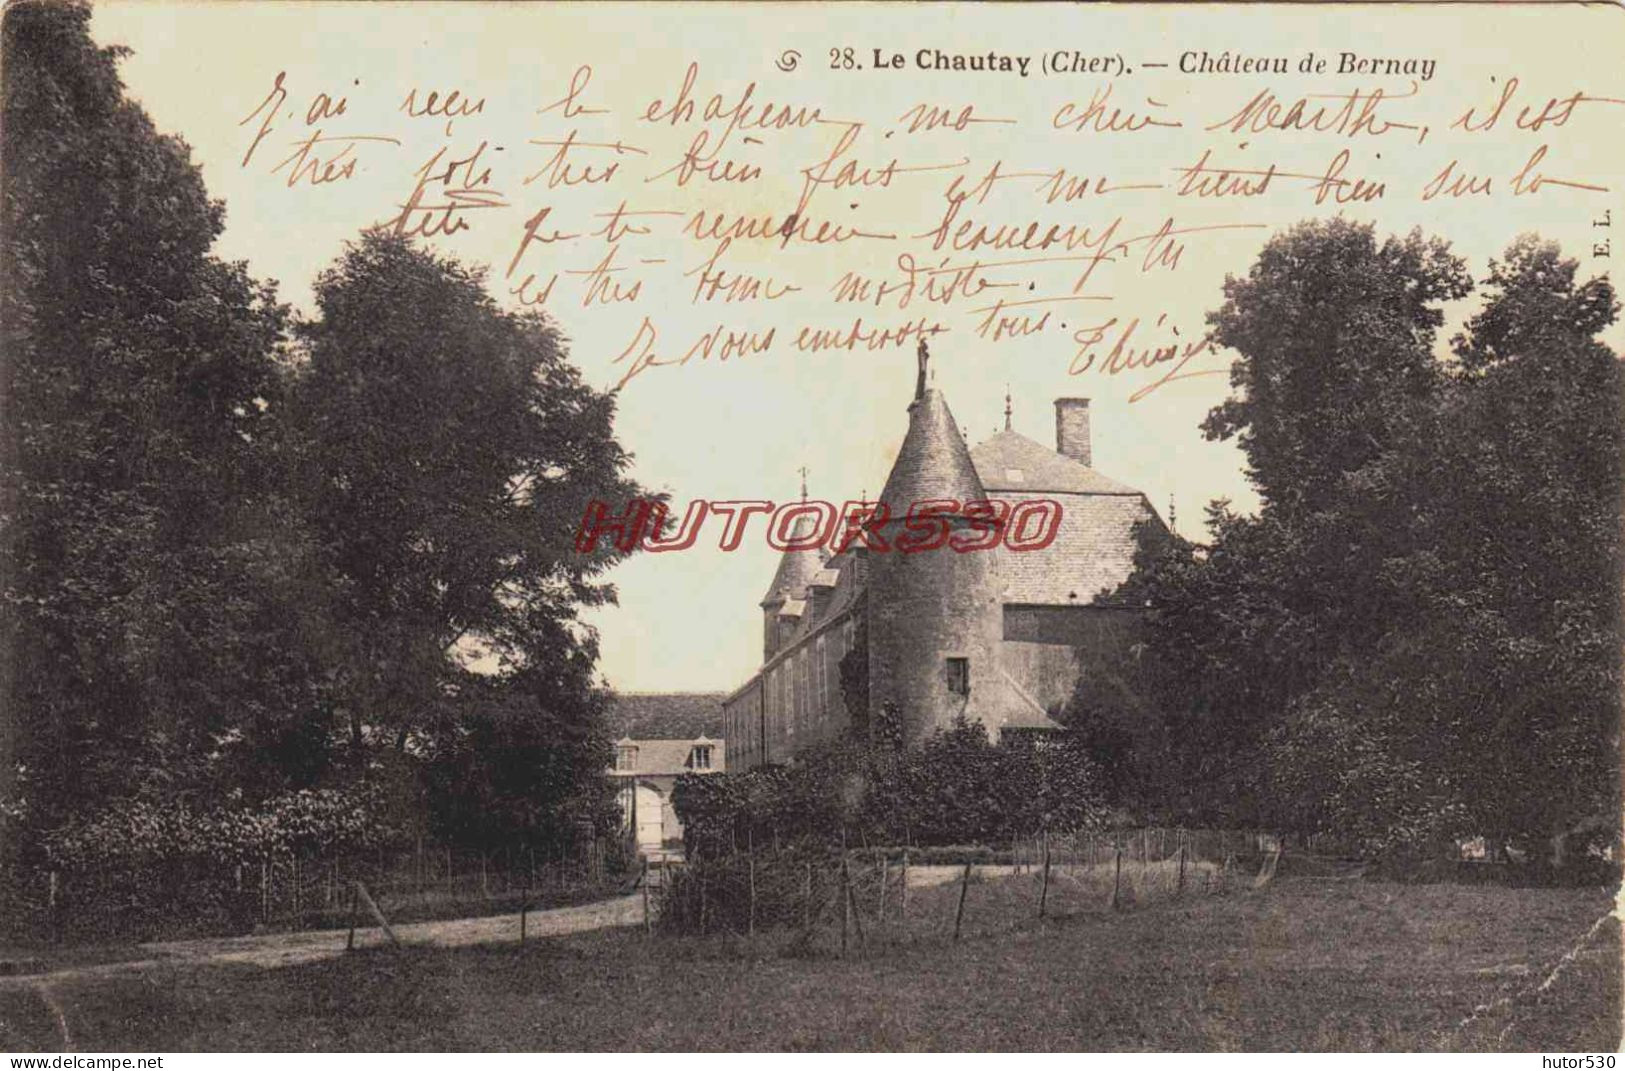 28. Le Chautay (Cher). — Château de Bernay
J'ai reçu le chapeau, ma chère Marthe, il est
très joli très bien fait et me tient bien sur la
tête je te remercie beaucoup, tu
es très bonne modiste.
Je vous embrasse tous. Thérèse
E. L.
HUTOR530
hutor530.com
hutor530